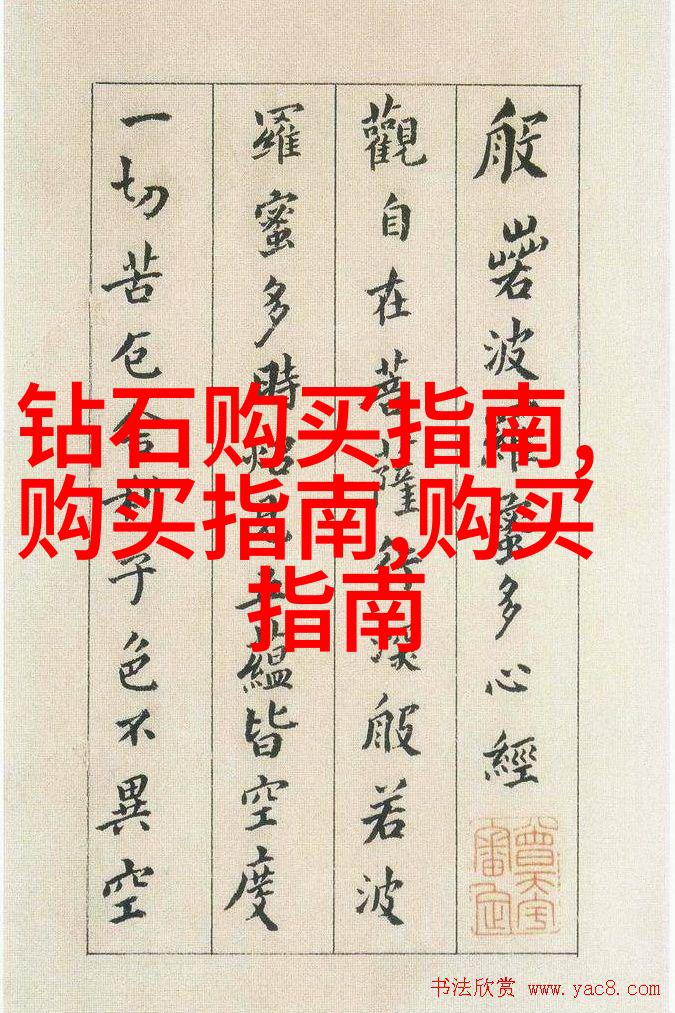 钻石购买指南,
购买指南,购买
指南
般若波羅蜜多心經
觀自在菩薩行深般若波
羅蜜多時照見五蘊皆空度
一切苦厄舍利子色不異空
书法欣赏 www.yac8.com